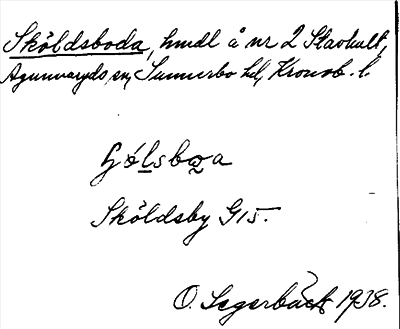 Sköldsboda, hmdl å nr 2 Slävhult,
Agunnaryds sn, Sunnerbo hd, Kronob. l.
Sköldsby G15.
O. Segerbäck 1938.